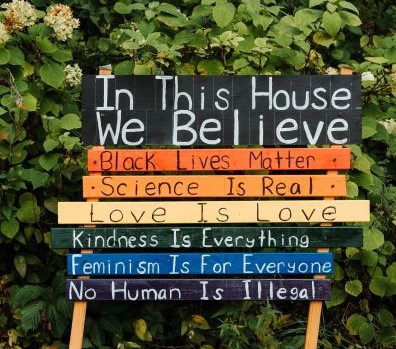 In This House
We Believe
Black Lives Matter
Science Is Real
Love Is Love
Kindness Is Everything
Feminism Is For Everyone
No Human Is Illegal